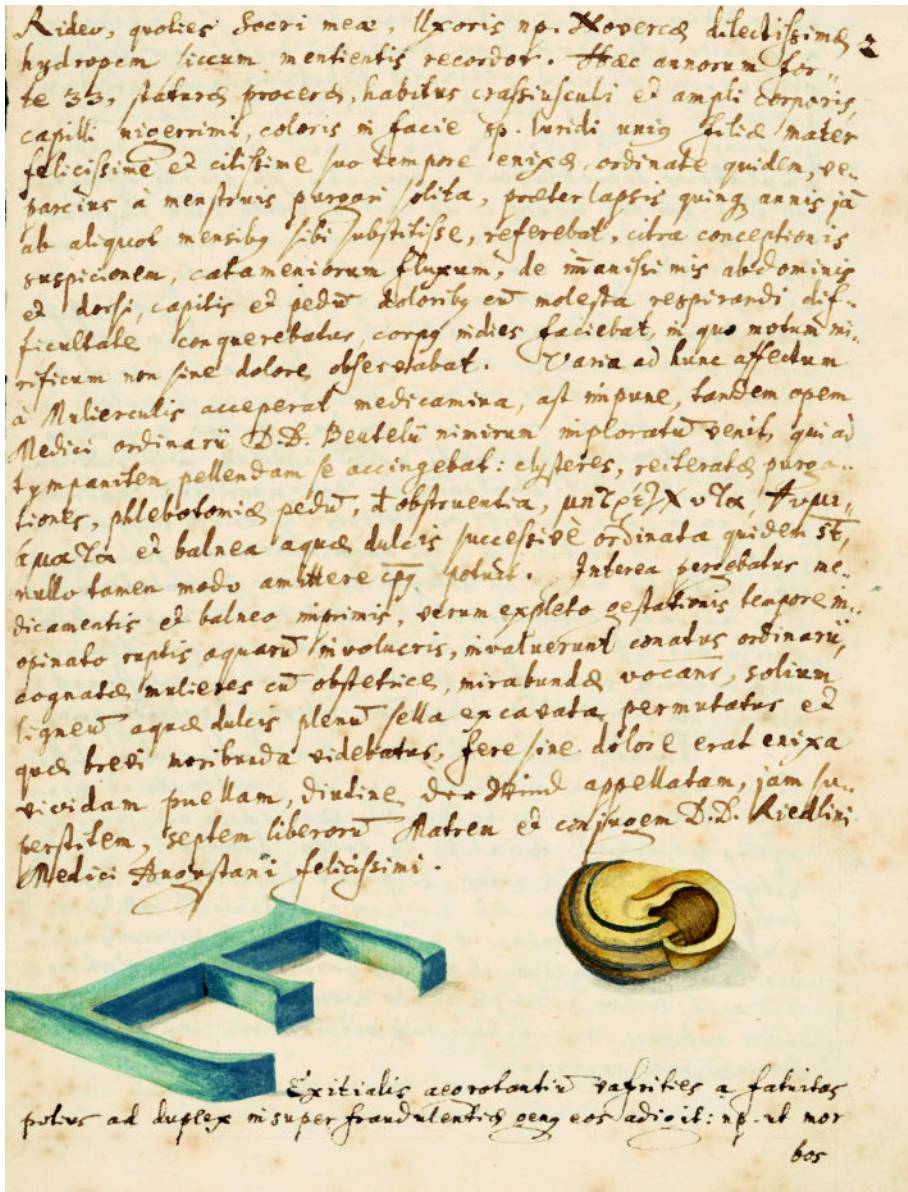 Rideo, quoties Socri meæ, Uxoris np. Novercæ dilectissimæ
2
hydropem siccum mentientis recordor. Hæc annorum for„
te 33, staturæ proceræ, habitus crassiusculi et ampli corporis,
capilli nigerrimi, coloris in facie sp. luridi uniq filiæ mater
felicissime et citissime suo tempore enixæ, ordinate quidem, se„
parcius à menstruis purgari solita, præterlapsis quinq annis jā
ab aliquot mensibq sibi substitisse, referebat, citra conceptionis
suspicionem, catameniorum fluxum, de īmanissimis abdominis
et dorsi, capitis et pedū doloribq cū molesta respirandi dif„
ficultate conquerebatur, corpq indies faciebat, in quo motum mi„
rificum non sine dolore observabat. Varia ad hunc affectum
à Mulierculis acceperat medicamina, ast impune, tandem opem
Medici ordinarii D.D. Beutelii nimirum imploratū venit, qui ad
tympanitem pellendam se accingebat: clysteres, reiteratæ purga„
tiones, phlebotomiæ pedū, obstruentia,
et balnea aquæ dulcis successivè ordinata quidem st̄,
nullo tamen modo amittere potuit. Interea pergebatur me„
dicamentis et balneo inprimis, verum expleto gestationis tempore in„
opinato ruptis aquarū involucris, invaluerunt conatus ordinarii,
cognatæ mulieres cū obstetrice, mirabundæ vocanr, solium
ligneū aquæ dulcis plenū sella excavata permutatur et
quæ brevi moribunda videbatur, fere sine dolore erat enixa
vividam puellam, diutine appellatam, jam su„
perstitem, septem liberorū Matrem et conjugem D.D. Riedlini
Medici Augustani felicissimi.
E
Exitialis aegrotantiū vafrities a fatuitas
potius ad duplex insuper fraudulentiæ genq eos adigit: np. ut mor
bos